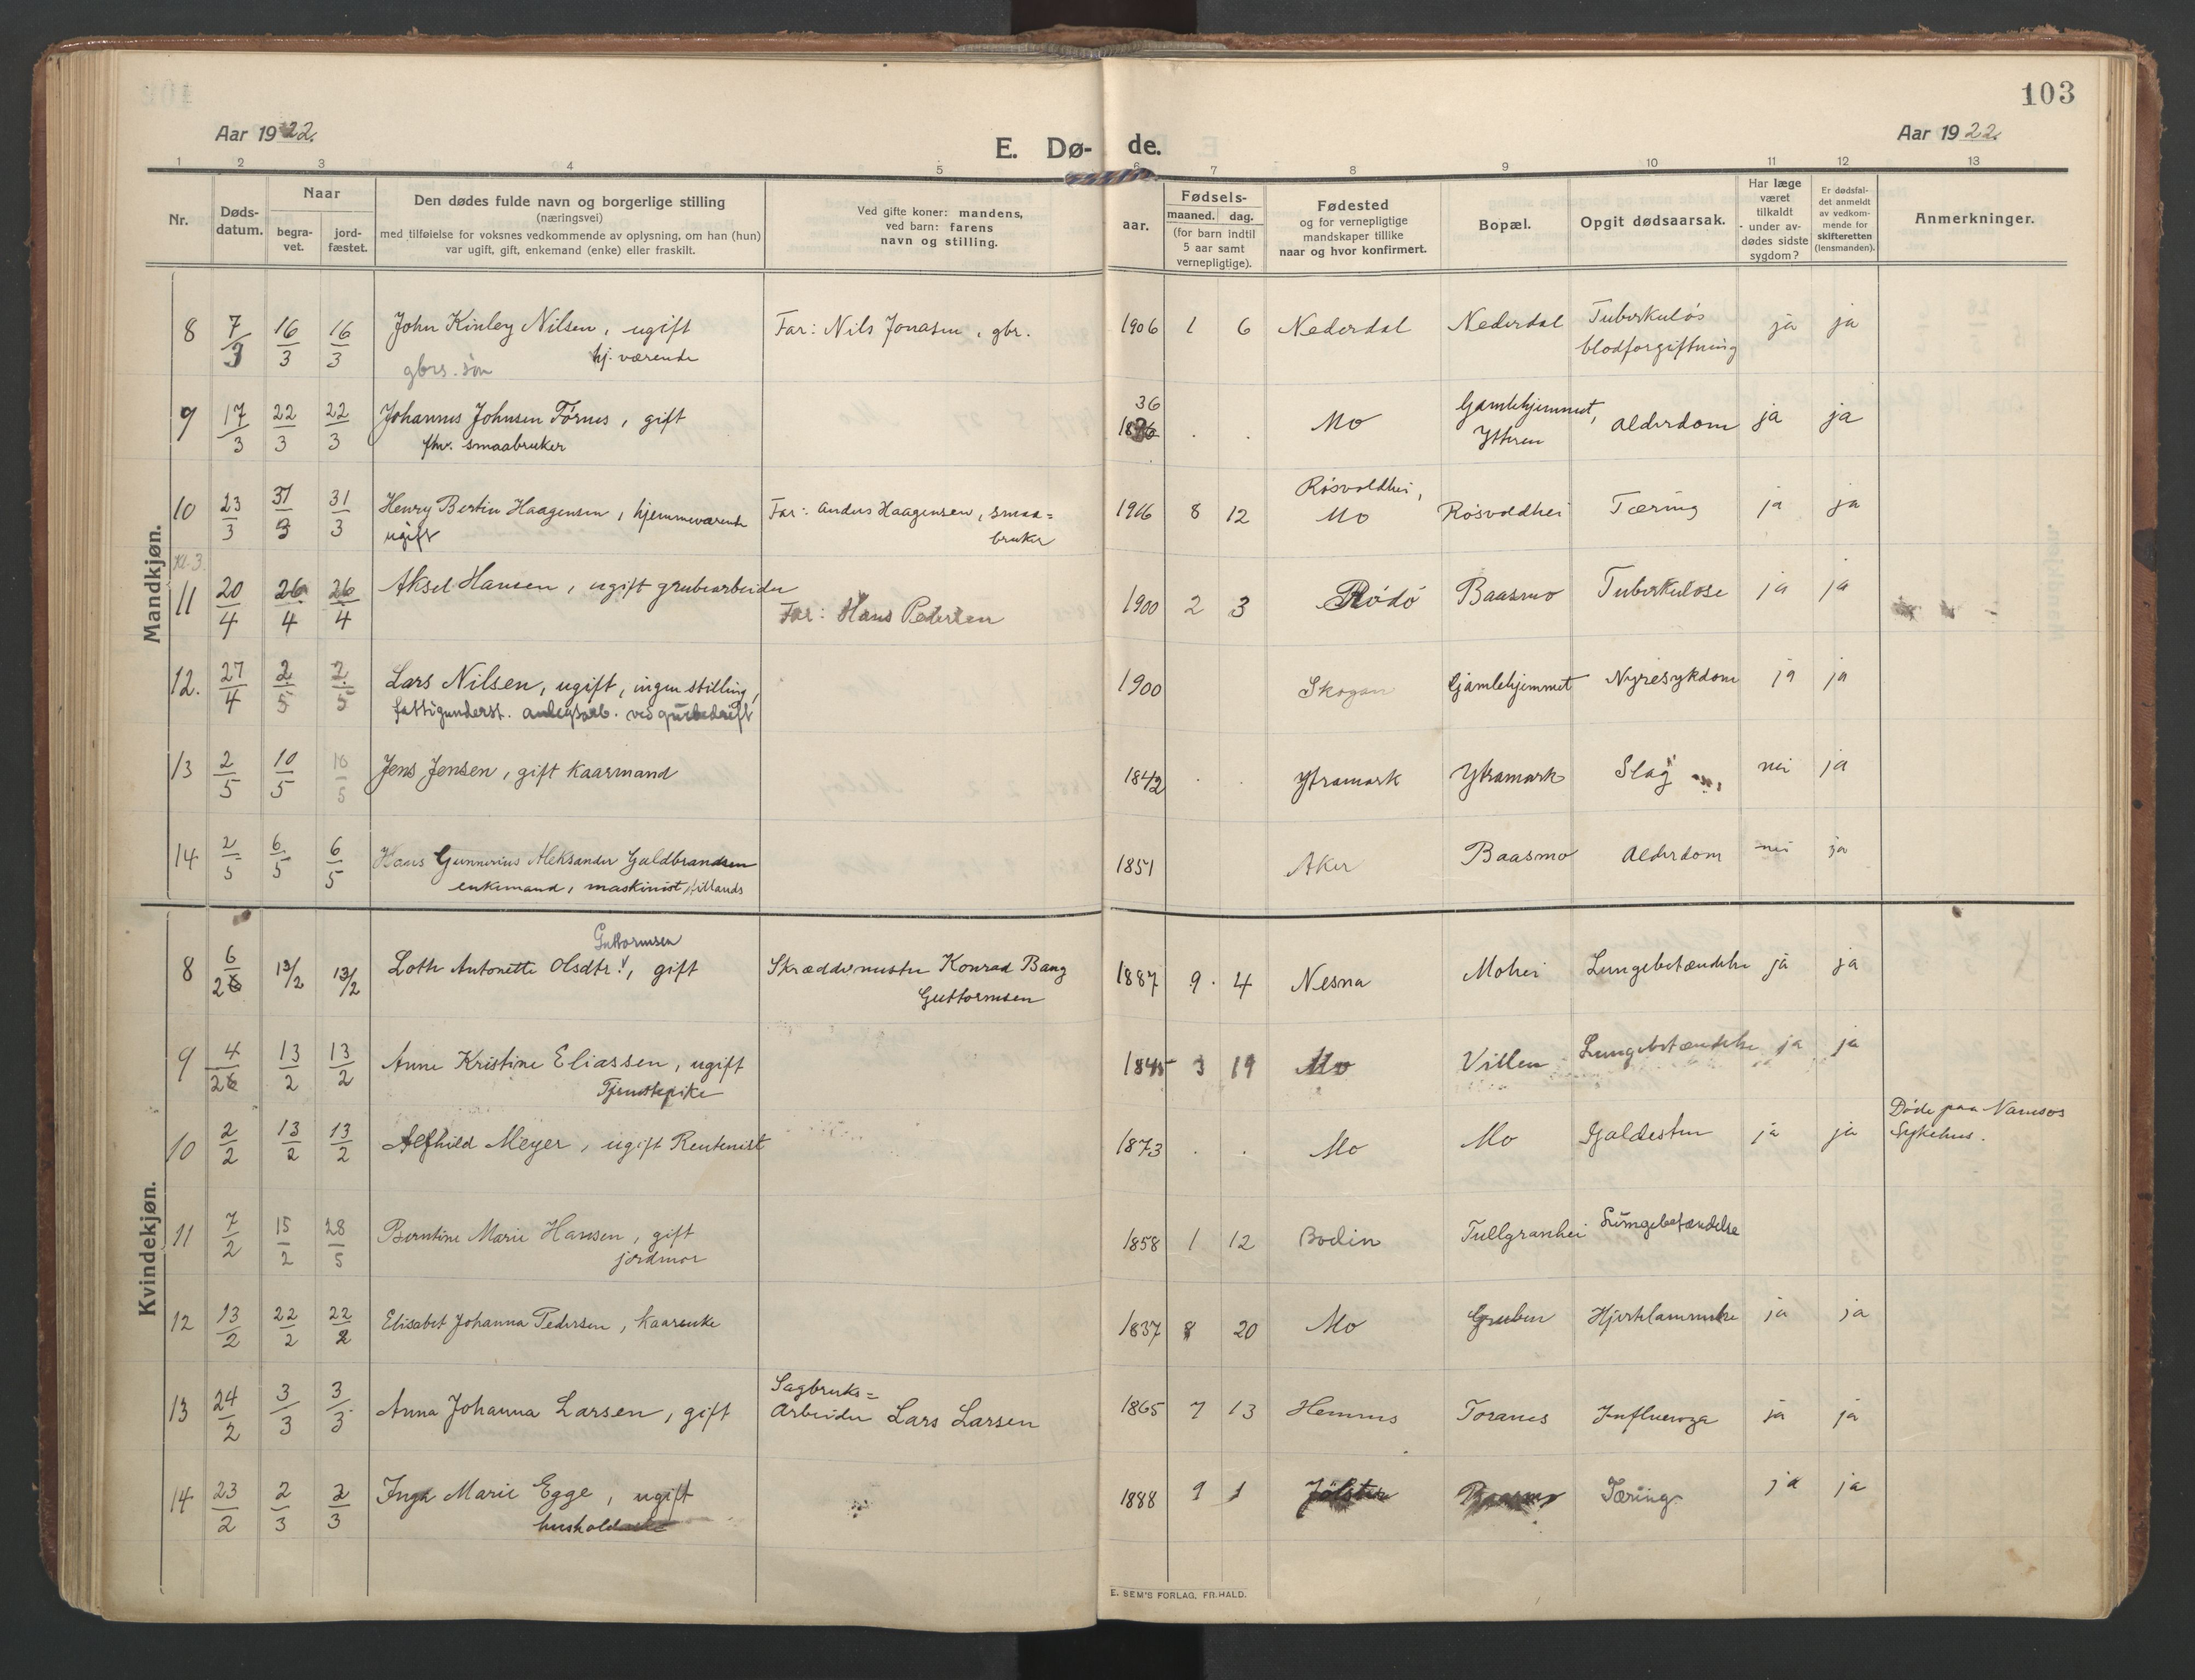 103
Aar 1922.
E. Dø-
de.
Aar 1922.
1 2 3 4 5 6 7 8 9 10 11 12 13
Nr.
Døds-
datum.
Naar
begra-
vet.
jord-
fæstet.
Den dødes fulde navn og borgerlige stilling
(næringsvei)
med tilføielse for voksnes vedkommende av oplysning, om han (hun)
var ugift, gift, enkemand (enke) eller fraskilt.
Ved gifte koner: mandens,
ved barn: farens
navn og stilling.
aar.
Fødsels-
maaned. dag.
(for barn indtil
5 aar samt
vernepligtige).
Fødested
og for vernepligtige
mandskaper tillike
naar og hvor konfirmert.
Bopæl.
Opgit dødsaarsak.
Har læge
været
tilkaldt
under av-
dødes sidste
sygdom?
Er dødsfal-
det anmeldt
av vedkom-
mende for
skifteretten
(lensmanden).
Anmerkninger.
Mandkjøn.
8 7/3 16/3 16/3 John Kinley Nilsen, ugift Far: Nils Jonasen, gbr. 1906 1 6 Nederdal Nederdal Tuberkuløs ja ja
gbrs. søn hj. værende blodforgiftning
36
9 17/3 22/3 22/3 Johannes Johnsen Førnes, gift 18 . . Mo Gamlehjemmet, Alderdom ja ja
fhv. smaabruker Ytteren
Røsvoldhei,
10 23/3 31/3 31/3 Henry Bertin Haagensen, hjemmeværende Far: Anders Haagensen, smaa= 1906 8 12 Mo Røsvoldhei Tæring ja ja
ugift bruker
Kl. 3.
11 20/4 26/4 26/4 Aksel Hansen, ugift grubearbeider 1900 2 3 Rødø Baasmo Tuberkulose ja ja
Far: Hans Pedersen
12. 27/4 2/5 2/5 Lars Nilsen, ugift, ingen stilling, 1900 Skogan Gamlehjemmet Nyresykdom ja ja
fattigunderst. anlegsarb. ved grubedrift
13 2/5 10/5 10/5 Jens Jensen, gift kaarmand 1842 . . Ytramark Ytramark Slag nei ja
14 2/5 6/5 6/5 Hans Gunnerius Aleksander Guldbrandsen 1851 Aker Baasmo Alderdom nei ja
enkemand, maskinist, tillands
Kvindekjøn.
Guttormsen
8 6/2 13/2 13/2 Loth Antonette Olsdtr., gift Skræddermester Konrad Bang 1887 9. 4 Nesna Mohei Lungebetændelse ja ja
Guttormsen
9 4/2 13/2 13/2 Anne Kristine Eliassen, ugift 1845 3 19 Mo Villen Lungebetændelse ja ja
Tjenstepike
10 2/2 13/2 13/2 Alfhild Meyer, ugift Rentenist 1873 . . Mo Mo Galdesten ja ja Døde paa Namsos
Sykehus.
11 7/2 15/2 28/5 Berntine Marie Hansen, gift 1858 1 12 Bodin Tullgranhei Lungebetændelse
jordmor
12 13/2 22/2 22/2 Elisabet Johanna Pedersen, kaarenke 1837 8 20 Mo Gruben Hjertelammelse ja ja
13 24/2 3/3 3/3. Anna Johanna Larsen, gift Sagbruks= 1865 7 13 Hemnes Toranes Influenza ja ja
Arbeider Lars Larsen
14 23/2 2/3 2/3 Inga Marie Egge, ugift 1888 9 1 Jølster Baasmo Tæring ja ja
E. SEM'S FORLAG, FR.HALD.